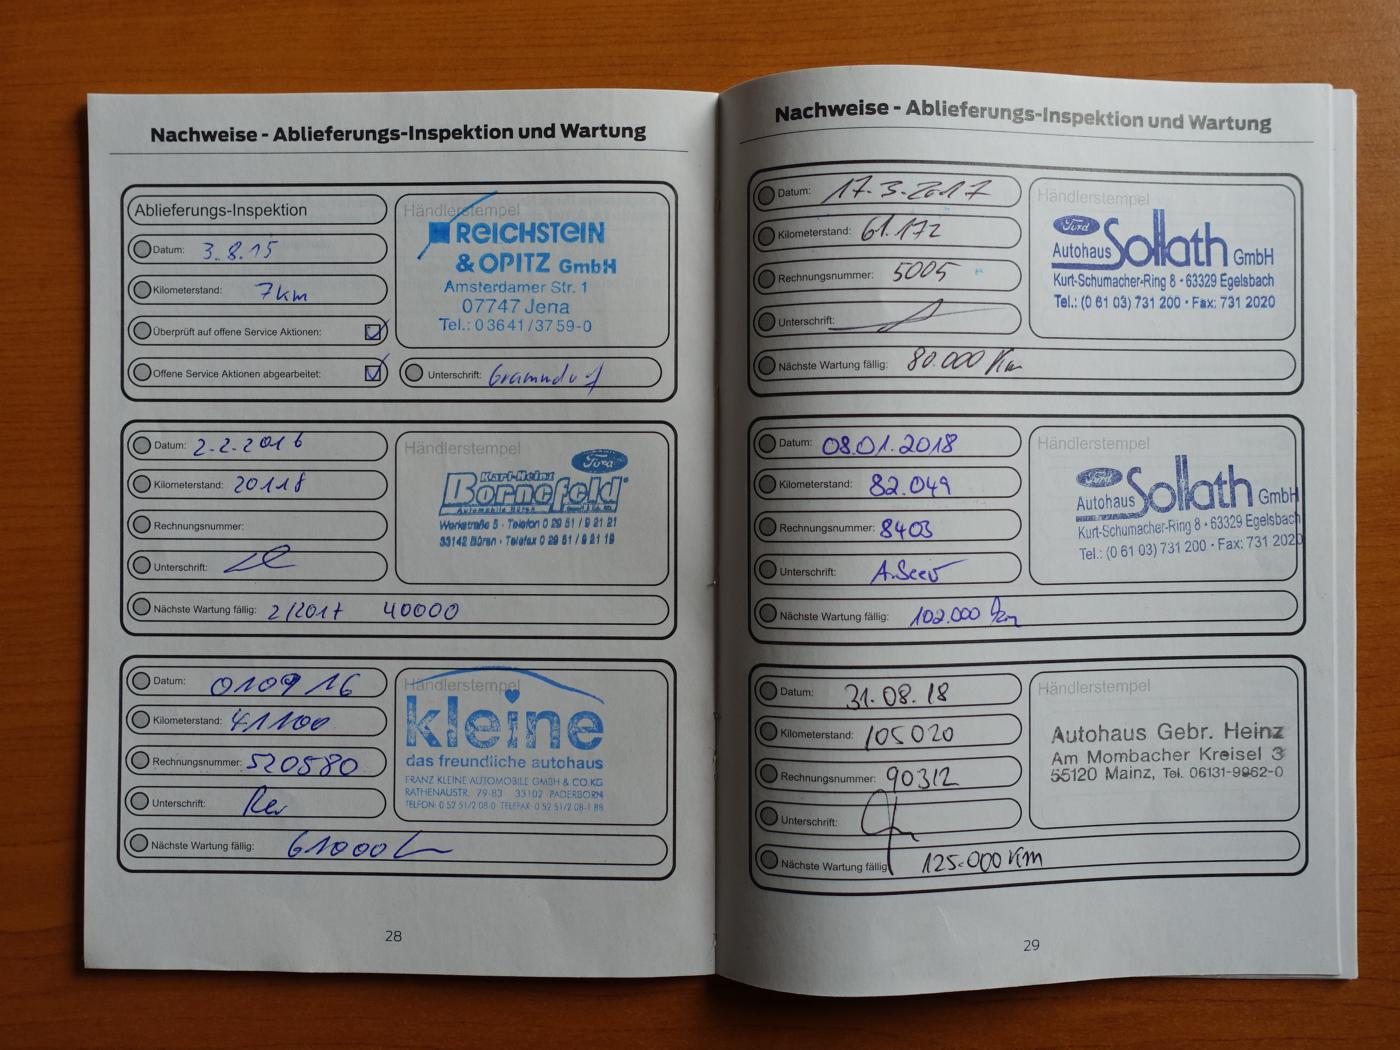 Nachweise - Ablieferungs-Inspektion und Wartung
Ablieferungs-Inspektion
Datum: 3.8.15
Kilometerstand: 7km
Überprüft auf offene Service Aktionen:
Offene Service Aktionen abgearbeitet:
Händlerstempel
REICHSTEIN
& OPITZ GmbH
Amsterdamer Str. 1
07747 Jena
Tel.: 03641/3759-0
Unterschrift:
Datum: 2.2.2016
Kilometerstand: 20118
Rechnungsnummer:
Unterschrift:
Nächste Wartung fällig: 2/2017 40000
Händlerstempel
Ford
Karl-Heinz
Bornefeld
Automobile Büren
Werkstraße 5 · Telefon 0 29 51 / 9 21 21
33142 Büren · Telefax 0 29 51 / 9 21 19
Datum: 010916
Kilometerstand: 41100
Rechnungsnummer: 520580
Unterschrift:
Nächste Wartung fällig: 61000
Händlerstempel
kleine
das freundliche autohaus
FRANZ KLEINE AUTOMOBILE GMBH & CO.KG
RATHENAUSTR. 79-83 33102 PADERBORN
TELFON: 0 52 51/2 08-0 TELEFAX: 0 52 51/2 08-1 88
28
Nachweise - Ablieferungs-Inspektion und Wartung
Datum: 17.3.2017
Kilometerstand: 61.172
Rechnungsnummer: 5005
Unterschrift:
Nächste Wartung fällig: 80.000 Km
Händlerstempel
Ford
Autohaus Sollath GmbH
Kurt-Schumacher-Ring 8 · 63329 Egelsbach
Tel.: (0 61 03) 731 200 · Fax: 731 2020
Datum: 08.01.2018
Kilometerstand: 82.049
Rechnungsnummer: 8403
Unterschrift:
Nächste Wartung fällig: 102.000 km
Händlerstempel
Ford
Autohaus Sollath GmbH
Kurt-Schumacher-Ring 8 · 63329 Egelsbach
Tel.: (0 61 03) 731 200 · Fax: 731 2020
Datum: 31.08.18
Kilometerstand: 105020
Rechnungsnummer: 90312
Unterschrift:
Nächste Wartung fällig 125.000 Km
Händlerstempel
Autohaus Gebr. Heinz
Am Mombacher Kreisel 3
55120 Mainz, Tel. 06131-9962-0
29